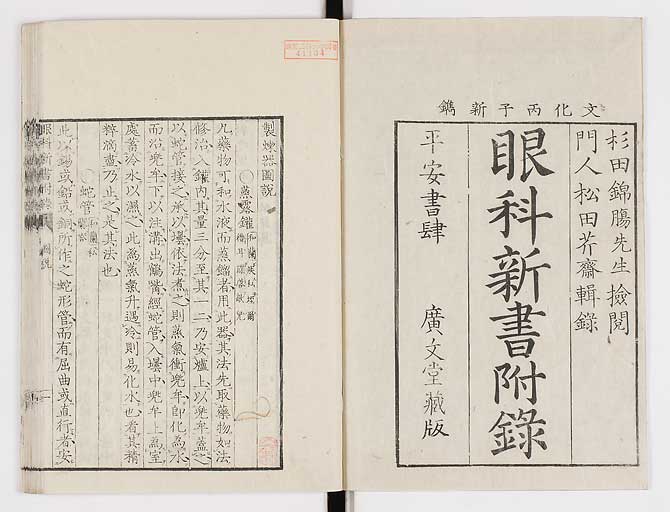 文化丙子新鐫
杉田錦膓先生撿閲
門人松田芥齋輯錄
眼科新書附錄
平安書肆 廣文堂藏版
製煉器圖説
○蒸露鑵
凡藥物可和水液而蒸餾者用此器其法先取藥物如法
修治入鑵内其量三分至其一二乃安爐上以兜牟蓋之
以蛇管接之承以壜依法煮之則蒸氣衝兜牟即化為水
而沿兜牟下以注溝出鶴嘴經蛇管入壜中兜牟上為室
處蓄冷水以濕之此為蒸氣升遇冷則易化水也看其精
粹滴盡乃止之是其法也
○蛇管
此以錫或鉛或銅所作之蛇形管而有屈曲或直行者安
眼科新書附錄 圖説
41104